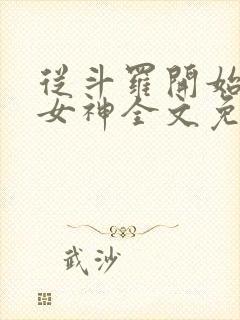 從斗羅開始
女神全文免
武沙